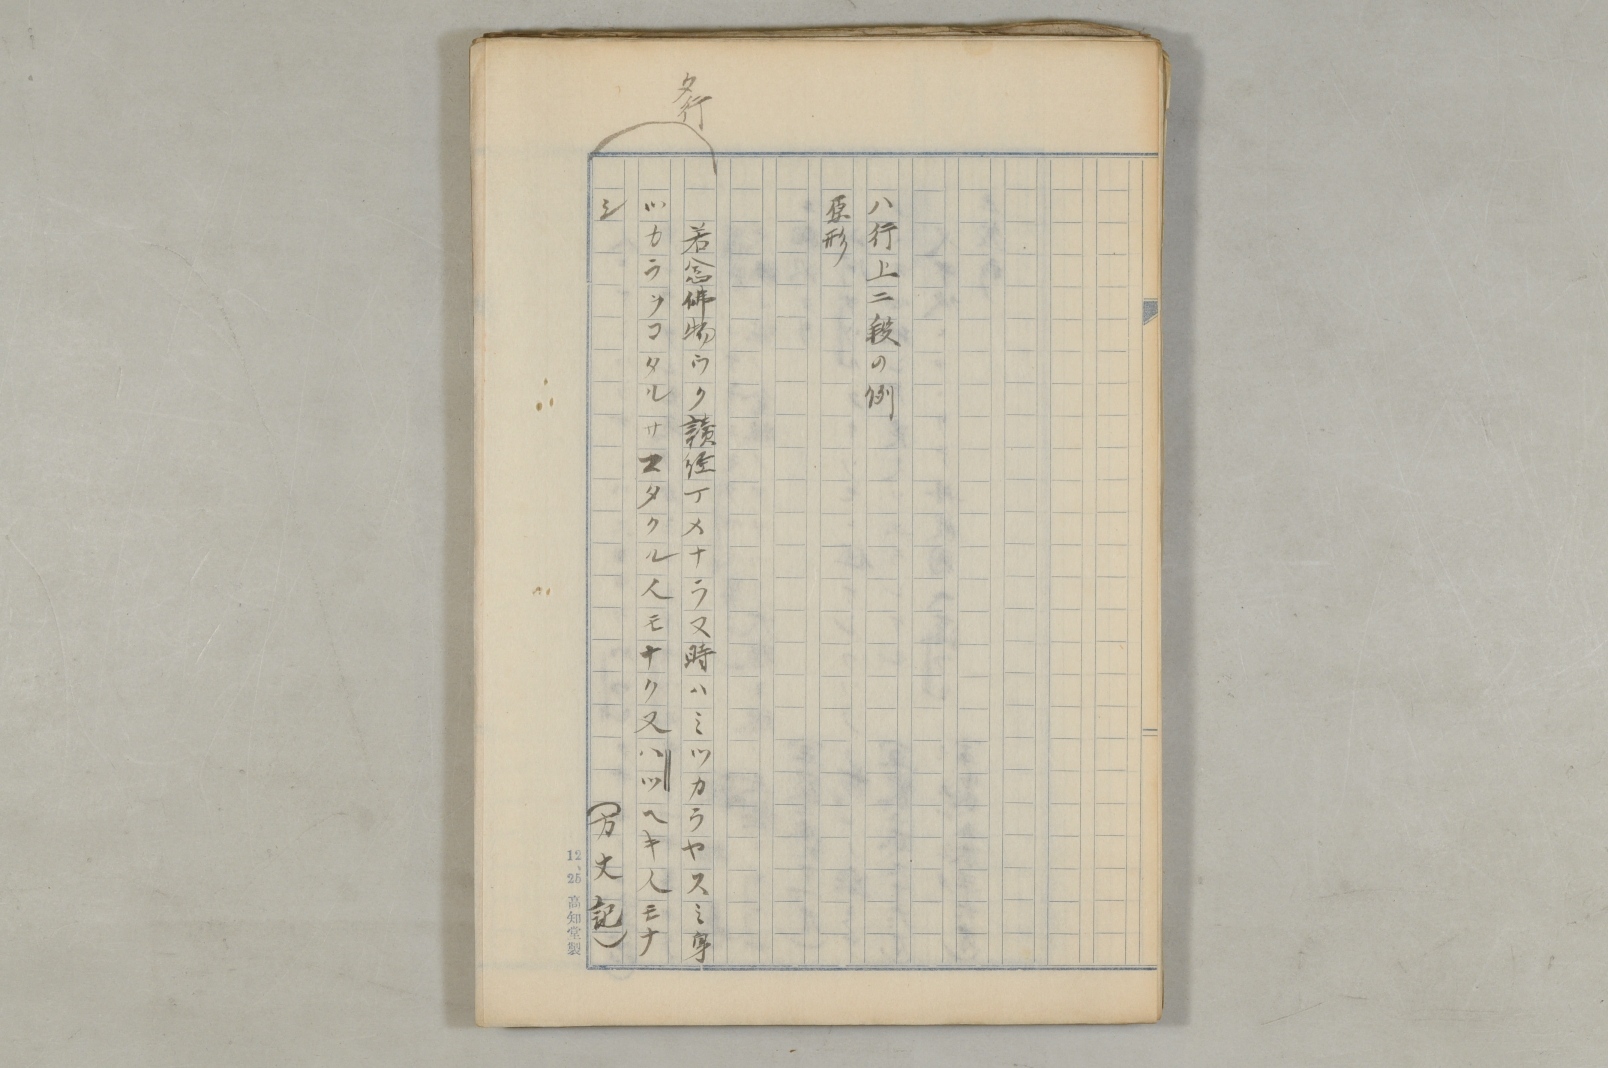 タ行
ハ行上二段の例
原形
若念佛物ウク讀経丁メナラヌ時ハミツカラヤスミ身
ツカラヲコタルサエタクル人モナク又ハツヘキ人モナ
シ
(方丈記)
12、25 高知堂製